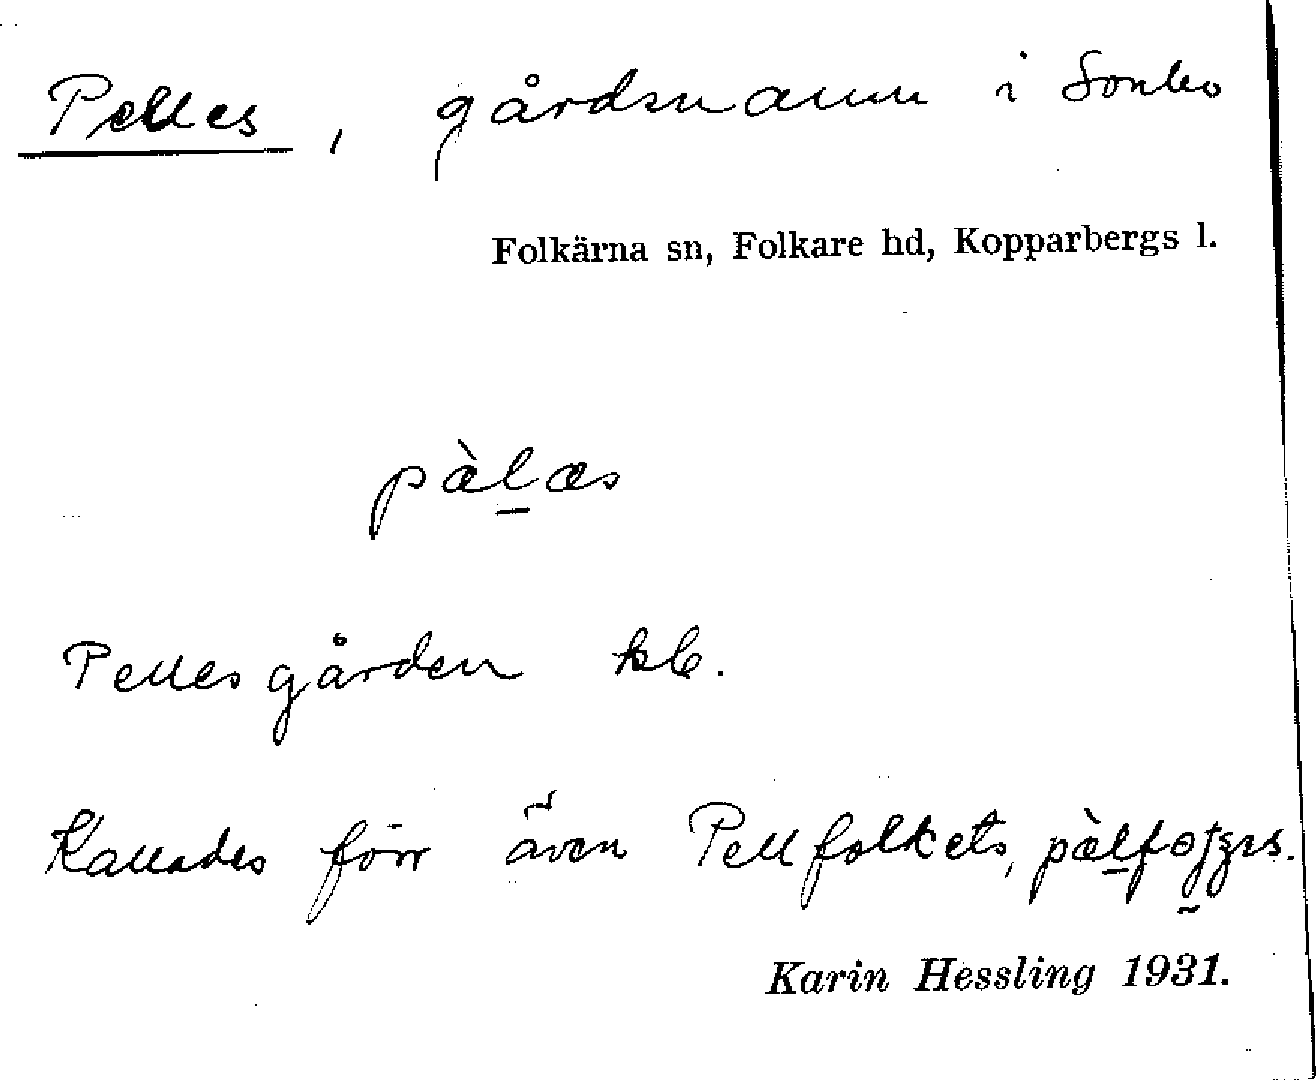 Pelles, gårdsnamn i Sonbo
Folkärna sn, Folkare hd, Kopparbergs l.
pæ̀l̠æs
Pellesgården kb.
Kallades förr även Pellfolkets,
Karin Hessling 1931.